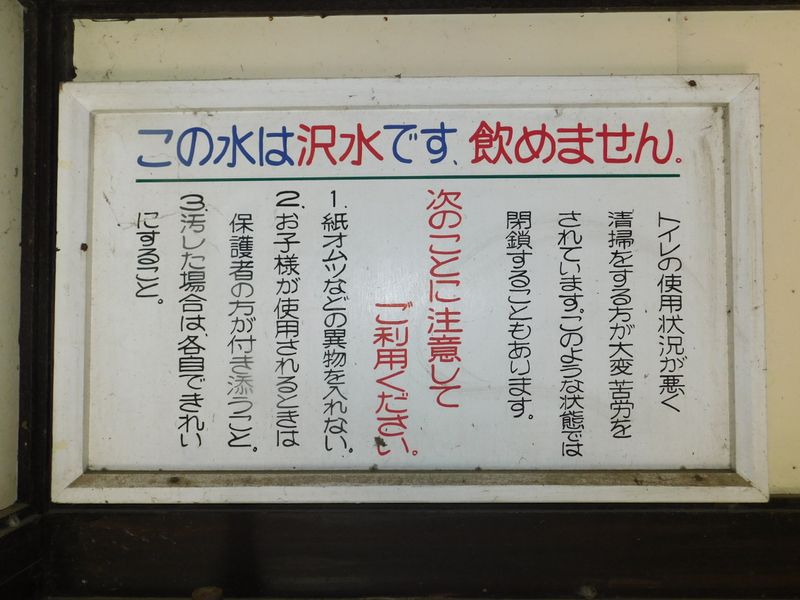 この水は沢水です、飲めません。
トイレの使用状況が悪く
清掃をする方が大変苦労を
されています。このような状態では
閉鎖することもあります。
次のことに注意して
ご利用ください。
1.紙オムツなどの異物を入れない。
2.お子様が使用されるときは
保護者の方が付き添うこと。
3.汚した場合は、各自できれい
にすること。